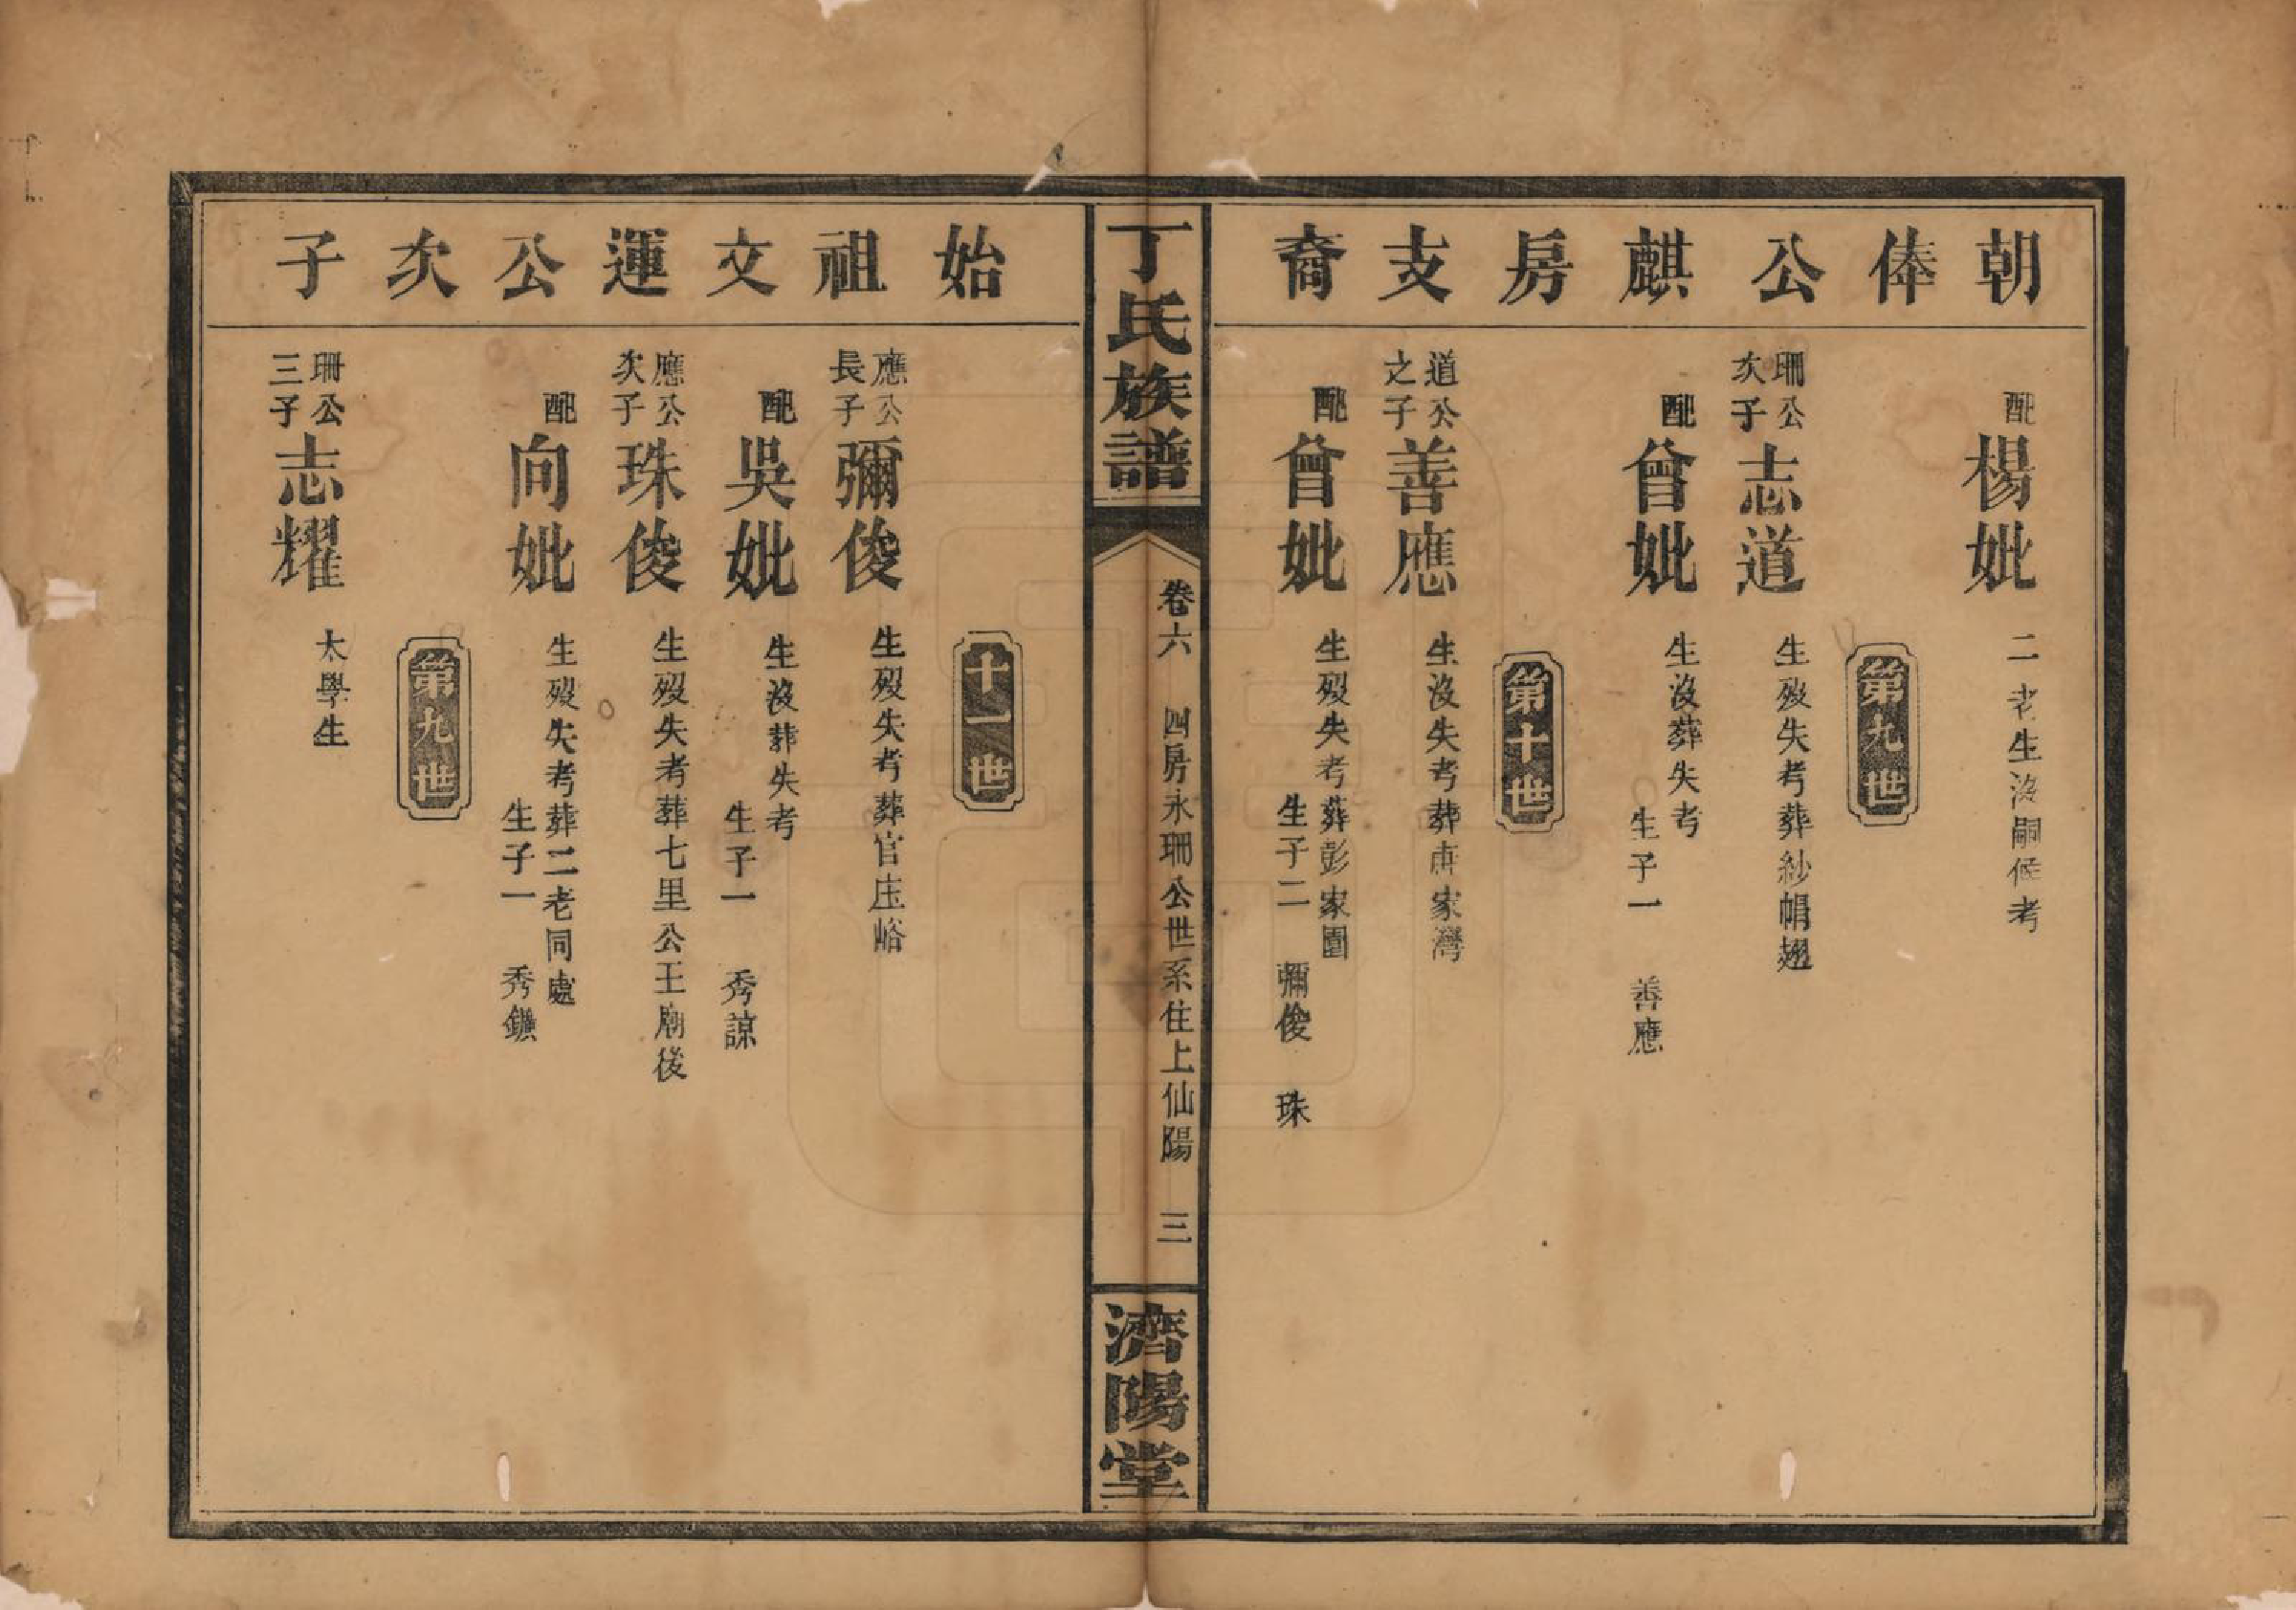 朝俸公麒房支裔
配楊妣 二老生沒嗣候考
第九世
珊公次子志道 生歿失考葬紗帽翅
配曾妣 生沒葬失考
生子一 善應
第十世
道公之子善應 生沒失考葬 家灣
配曾妣 生歿失考葬彭家園
生子二 彌俊 珠
丁氏族譜
卷六 四房永珊公世系住上仙陽 三
濟陽堂
始祖文運公次子
十一世
應公長子彌俊 生歿失考葬官庄峪
配吳妣 生沒葬失考
生子一 秀諒
應公次子珠俊 生歿失考葬七里公王廟後
配向妣 生歿失考葬二老同處
生子一 秀
第九世
珊公三子志耀 太學生